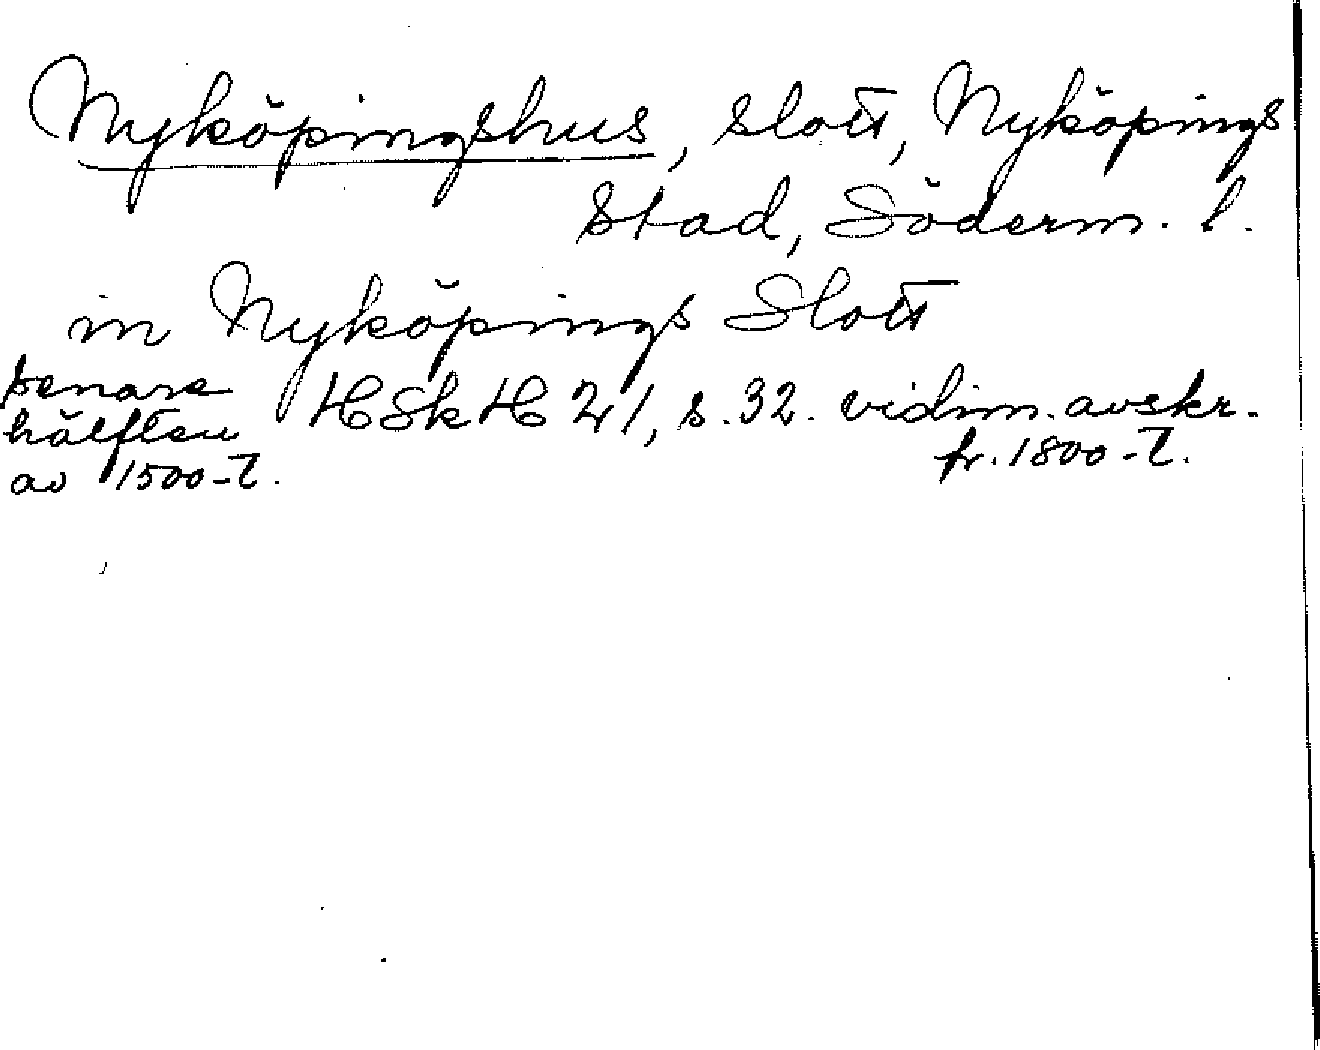 Nyköpingshus, slott, Nyköpings
stad, Söderm. l.
in Nyköpings Slott
senare
hälften
av 1500-t.
HSkH 21, s. 32. vidim. avskr.
fr. 1800-t.